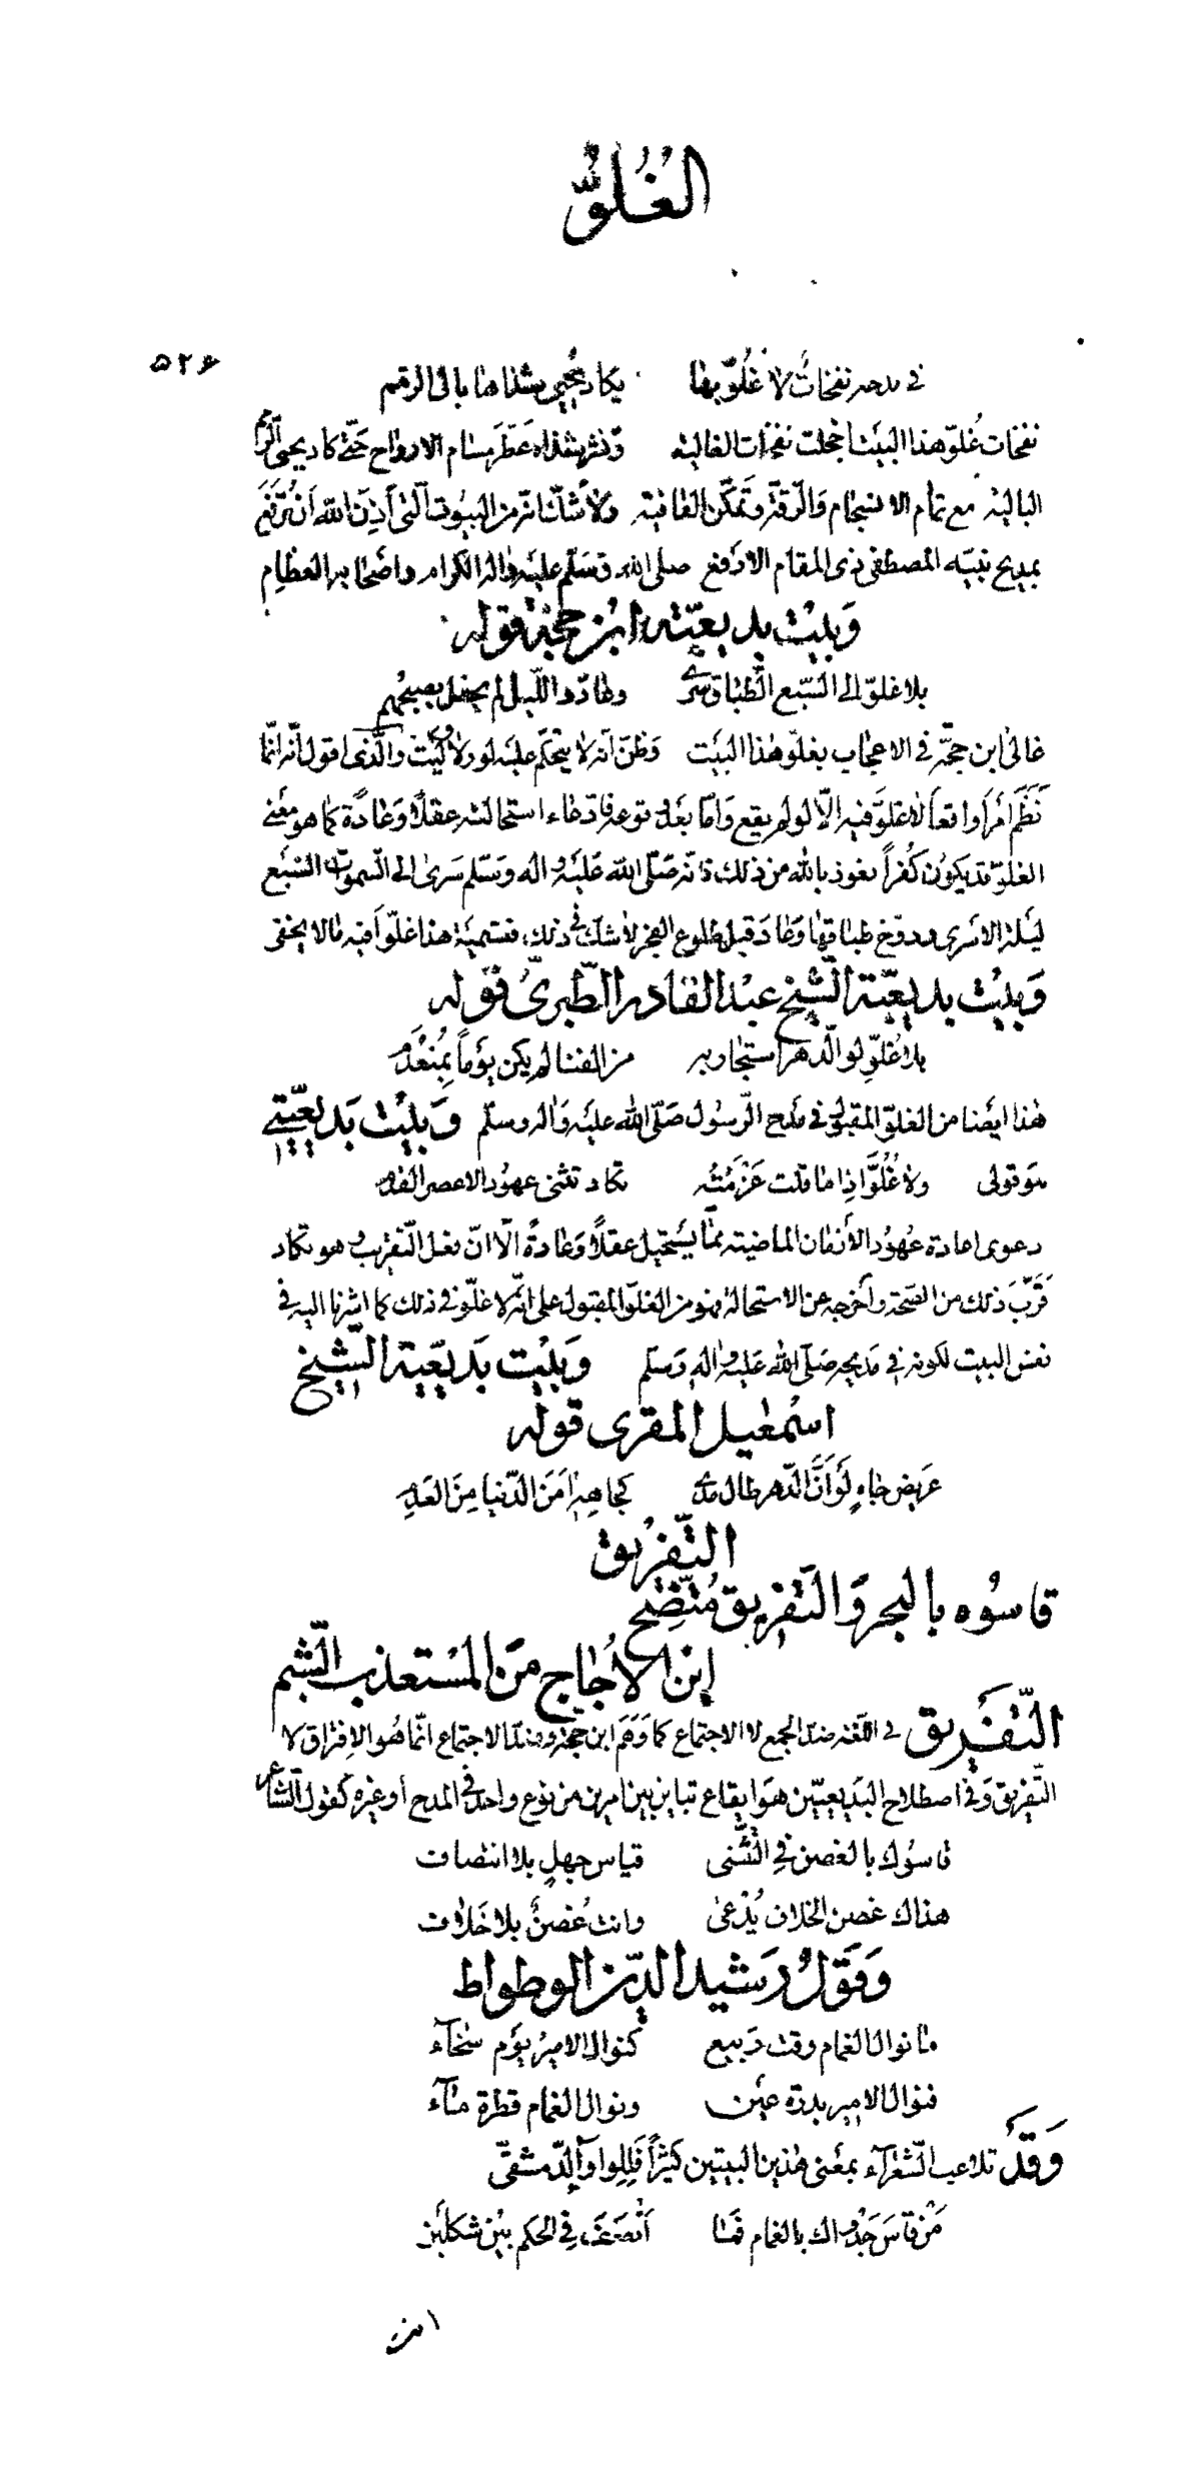 الغُلوّ
۵۲۶
في مدحه نفحات لا غُلوّ بها يكاد يحيى بشذاها بالى الرقم
نفحات غُلوّ هذا البيت اخجلت نفحات الغالية ونشر شذاه عَطّر مسام الارواح حتّى كاد يحيى الرّمم
البالية مع تمام الانسجام والرّقّة وتمكّن القافية ولا شكّ انّه من البيُوت الّتى أَذِنَ اللّه أن تُرْفَع
بمديح نبيّه المصطفى ذى المقام الارفع صلى الله وسَلّم عليه واله الكرام واصحابه العظام
وَبيْت بديعيّة ابن حجّة قوله
بلا غلوّ الى السّبع الطّباق سرى وعاد واللّيل لم يحفل بصبحهم
غالى ابن حجّة في الاعجاب بغلوّ هذا البيت وَظنّ انّه لا يتحكّم عليه لو ولا كَيْتَ والّذى اقول انّه انّما
نَظَمَ أمراً واقعاً لا غلوّ فيه الّا لو لم يقع وَامّا بعد وقوعه فادّعاء استحالته عقلاً وَعادةً كما هو معنى
الغلوّ قد يكوُن كُفراً نعوذ بالله من ذلك فانّه صَلّى اللّه عَليْه واله وسَلّم سَرىٰ الى السّموات السّبع
ليلة الاسرى ودوّخ طباقها وَعادَ قبل طلوع الفجر لا شكّ فى ذلك، فتسمية هذا غلوّاً فيه ما لا يخفى
وَبيْت بديعيّة الشّيخ عبْد القادر الطّبرىّ قوْله
بلا غُلوٍّ لو الّدهر استجار به من الفنا لم يكن يوماً بمُنعَدم
هٰذا ايضا من الغلوّ المقبول في مدح الرّسوُل صَلّى الله عليْه وَاله وسلّم وَبيْت بَديعيّتي
هو قولى ولا غُلُوَّ اذِا ما قلت عَزْمَتُه تكاد تثنى عهوُد الاعصر القدم
دعوى اعادة عُهوُد الأزمان الماضية ممّا يَستحيل عقلاً وَعادةً الّا انّ فعل التّقريب وهو تكاد
قَرّبَ ذلك من الصّحة وأخرجه عن الاستحالة فهو من الغلوّ المقبول على انّه لا غلوّ فى ذلك كما اشرنا اليه فى
نفس البيت لكونه في مَديحه صَلّى الله عَليْه واله وَسَلّم وَبيْت بَديعيّة الشّيخ
اسْمعٰيل المقرى قوله
عَريض جاهٍ لَوْ أنَّ الدّهر طال مدى كجاهه أمَنَ الدّنيا مِنَ العَدمِ
التّفْريق
قاسُوه بالبحر وَالتّفريق مُتّضِح
اين الاُجٰاج من المُسْتعذب الشّبم
التّفريق في اللّغة ضدّ الجمع لا الاجتماع كما وَهِمَ ابن حجّة وضدّ الاجتماع انّما هُو الافتراق لا
التّفريق وَفى اصطلاح البَديعيّين هوَ ايقاع تباين بين امرين من نوع واحد فى المدح أوغيره كقول الشّاعر
قاسُوك بالغصن فِى التّثنى قياس جهلٍ بلا انتصاف
هذاك غصن الخلاف يُدْعىٰ وانتَ غُصنٌ بلا خَلاف
وَقَوْلُ رَشيد الدّين الوطواط
ما نوال الغمام وقت رَبيع كنوال الامير يَوْم سَخآء
فنوال الامير بدرة عيْن ونوال الغمام قطرة مآء
وَقَدْ تلاعب الشّعرآء بمعْنى هٰذين البيتين كثيراً قال الواوآء الدّمشقىّ
مَنْ قاسَ جَدْواك بالغمام فما أنْصَفَ فِى الحكم بيْن شكلين
انت